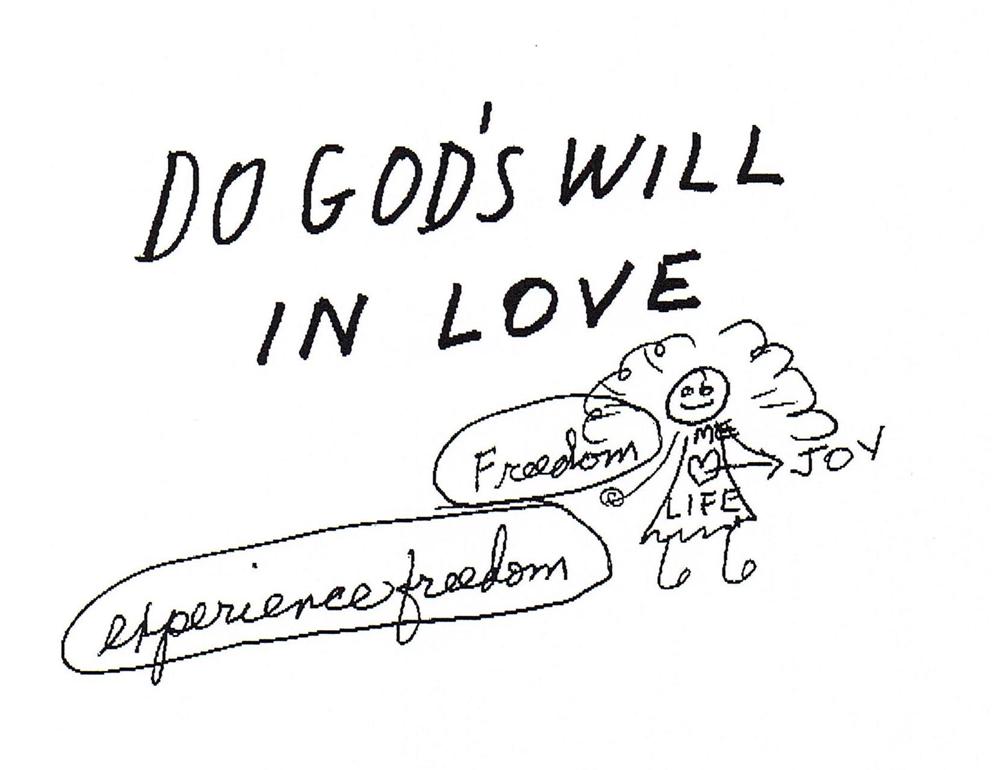 DO GOD'S WILL
IN LOVE
Freedom
experience freedom
ME
JOY
LIFE